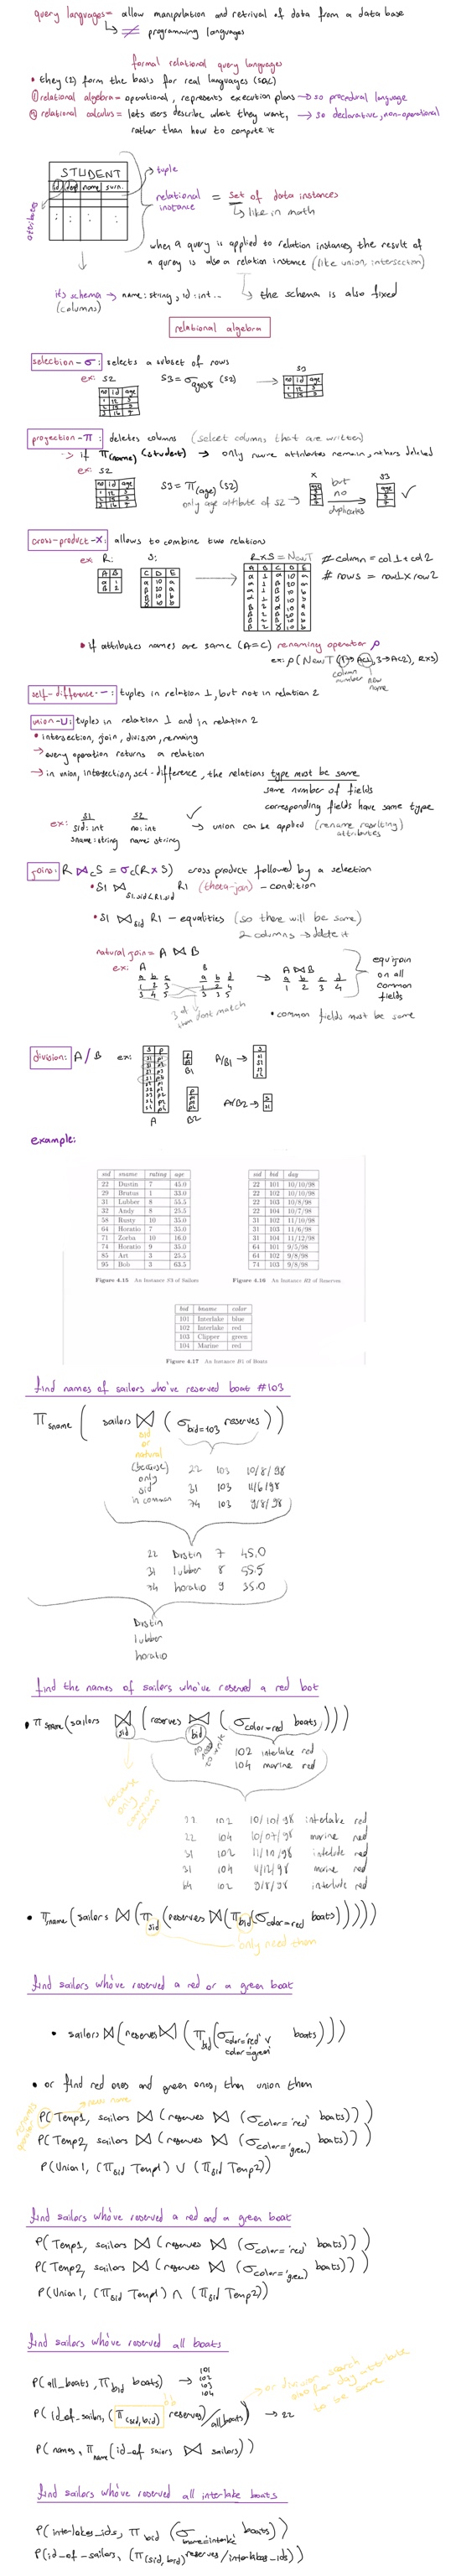 query languages = allow manipulation and retrival of data from a database
↳ ≠ programming languages
formal relational query languages
• they (2) form the basis for real languages (SQL)
① relational algebra = operational, represents execution plans → so procedural language
② relational calculus = lets users describe what they want, → so declarative, non-operational
rather than how to compute it
STUDENT
id dept name surn.
attributes
→ tuple
relational instance = set of data instances
↳ like in math
when a query is applied to relation instances, the result of
a query is also a relation instance (like union, intersection)
its schema → name: string, id: int...
(columns)
↳ the schema is also fixed
relational algebra
selection - σ : selects a subset of rows
ex: S2
no id age
S3
no id age
projection - π : deletes columns (select columns that are written)
→ if π(name) (student) → only name attributes remain, others deleted
ex: S2
no id age
S3 = π(age) (S2)
only age attribute of S2 →
X
age
but no duplicates
S3
age
✓
cross-product - X : allows to combine two relations
ex: R: S:
A B
α 1
β 2
C D E
α 10 a
β 10 a
β 20 b
γ 10 b
RXS = NewT
A B C D E
# column = col1 + col2
# rows = row1 x row2
• if attributes names are same (A=C) renaming operator ρ
ex: ρ(NewT (1→AC1, 3→AC2), RXS)
column number
new name
self-difference - − : tuples in relation 1, but not in relation 2
union - U : tuples in relation 1 and in relation 2
• intersection, join, division, remaing
→ every operation returns a relation
→ in union, intersection, set-difference, the relations type must be same
same number of fields
corresponding fields have same type
ex: S1 S2 ✓
sid: int no: int
sname: string name: string
→ union can be applied (rename resulting attributes)
joins: R ⋈c S = σc(RXS) cross product followed by a selection
• S1 ⋈ S1.sid<R1.sid R1 (theta-join) - condition
• S1 ⋈sid R1 - equalities (so there will be same)
2 columns → delete it
natural join = A ⋈ B
ex: A B
a b c
1 2 3
3 4 5
a b d
1 2 4
3 3 5
→ A ⋈ B
a b c d
1 2 3 4
equijoin on all common fields
dont match
• common fields must be same
division: A / B ex:
A
B1
A/B1 →
B2
A/B2 →
example:
sid sname rating age
22 Dustin 7 45.0
29 Brutus 1 33.0
31 Lubber 8 55.5
32 Andy 8 25.5
58 Rusty 10 35.0
64 Horatio 7 35.0
71 Zorba 10 16.0
74 Horatio 9 35.0
85 Art 3 25.5
95 Bob 3 63.5
Figure 4.15 An Instance S3 of Sailors
sid bid day
22 101 10/10/98
22 102 10/10/98
22 103 10/8/98
22 104 10/7/98
31 102 11/10/98
31 103 11/6/98
31 104 11/12/98
64 101 9/5/98
64 102 9/8/98
74 103 9/8/98
Figure 4.16 An Instance R2 of Reserves
bid bname color
101 Interlake blue
102 Interlake red
103 Clipper green
104 Marine red
Figure 4.17 An Instance B1 of Boats
find names of sailors who've reserved boat #103
π sname ( sailors ⋈ ( σ bid=103 reserves ) )
sid or natural
(because) only sid in common
22 103 10/8/98
31 103 11/6/98
74 103 9/8/98
22 Dustin 7 45.0
31 lubber 8 55.5
74 horatio 9 35.0
Dustin
lubber
horatio
find the names of sailors who've reserved a red bot
• π sname (sailors ⋈ sid (reserves ⋈ bid (σ color=red boats)))
because only common column
no need to write
102 interlake red
104 marine red
22 102 10/10/98 interlake red
22 104 10/07/98 marine red
31 102 11/10/98 interlake red
31 104 11/12/98 marine red
64 102 9/8/98 interlake red
• π name (sailors ⋈ (π sid (reserves ⋈ (π bid (σ color=red boats)))))
only need them
find sailors who've reserved a red or a green boat
• sailors ⋈ (reserves ⋈ (π bid (σ color='red' v color='green' boats)))
• or find red ones and green ones, then union them
→ new name
ρ(Temp1, sailors ⋈ (reserves ⋈ (σ color='red' boats)))
ρ(Temp2, sailors ⋈ (reserves ⋈ (σ color='green' boats)))
ρ(Union1, (π sid Temp1) U (π sid Temp2))
find sailors who've reserved a red and a green boat
ρ(Temp1, sailors ⋈ (reserves ⋈ (σ color='red' boats)))
ρ(Temp2, sailors ⋈ (reserves ⋈ (σ color='green' boats)))
ρ(Union1, (π sid Temp1) ∩ (π sid Temp2))
find sailors who've reserved all boats
ρ(all_boats, π bid boats) → 101
102
103
104
ρ(id_of_sailor, (π(sid, bid) reserves)/allboats) → 22
to be same
ρ(names, π name (id_of sailors ⋈ sailors))
find sailors who've reserved all interlake boats
ρ(interlakes_ids, π bid (σ boats))
ρ(id_of_sailors, (π(sid, bid) reserves / interlakes_ids))